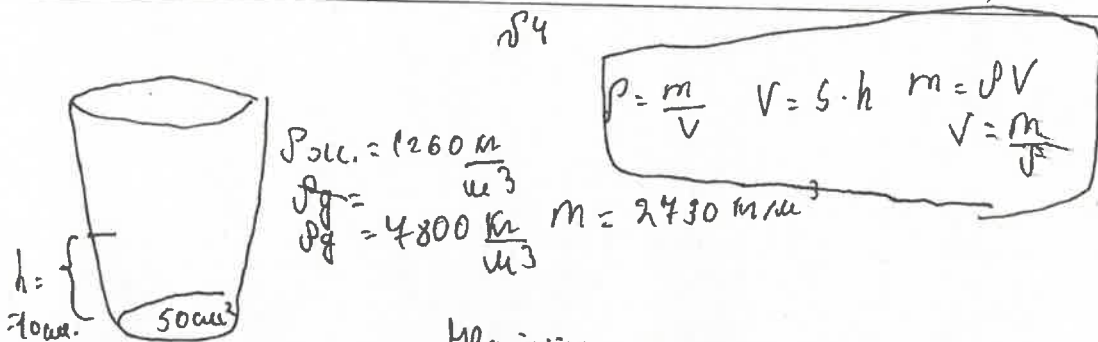 №4
ρ = m/V V = S · h m = ρV
V = m/ρ
ρж. = 1260 кг/м³
ρg =
ρg = 7800 кг/м³ m = 2730 кг/м³
h =
= 10 см.
50 см²